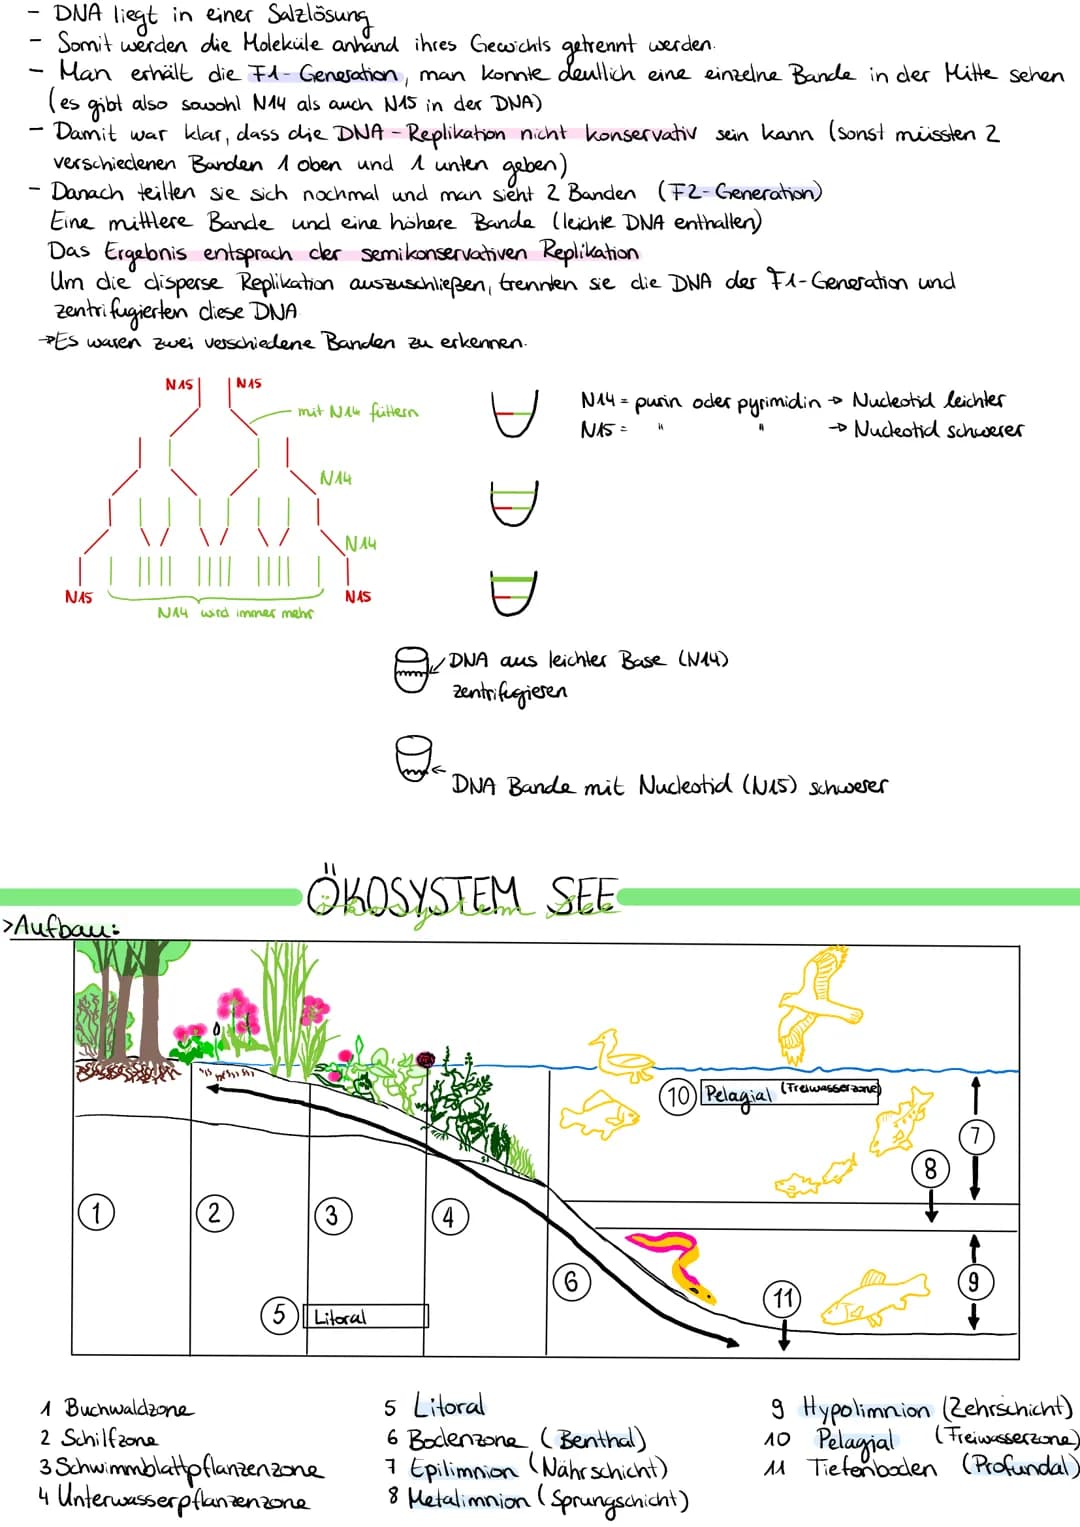 - DNA liegt in einer Salzlösung
- Somit werden die Moleküle anhand ihres Gewichts getrennt werden.
- Man erhält die F1-Generation, man konnte deutlich eine einzelne Bande in der Mitte sehen
(es gibt also sowohl N14 als auch N15 in der DNA)
- Damit war klar, dass die DNA-Replikation nicht konservativ sein kann (sonst müssten 2
verschiedenen Banden 1 oben und 1 unten geben)
- Danach teilten sie sich nochmal und man sieht 2 Banden (F2-Generation)
Eine mittlere Bande und eine höhere Bande (leichte DNA enthalten)
Das Ergebnis entsprach der semikonservativen Replikation
Um die disperse Replikation auszuschließen, trennten sie die DNA der F1-Generation und
zentrifugierten diese DNA
→Es waren zwei verschiedene Banden zu erkennen.
N15 N15
mit N14 füttern
N14 = purin oder pyrimidin → Nucleotid leichter
N15 = " " → Nucleotid schwerer
N14
N14
N15 N15
N14 wird immer mehr
DNA aus leichter Base (N14)
zentrifugieren
DNA Bande mit Nucleotid (N15) schwerer
ÖKOSYSTEM SEE
ökosystem See
>Aufbau:
10 Pelagial (Freiwasserzone)
7
8
1 2 3 4
6
9
11
5 Litoral
1 Buchwaldzone
2 Schilfzone
3 Schwimmblattpflanzenzone
4 Unterwasserpflanzenzone
5 Litoral
6 Bodenzone (Benthal)
7 Epilimnion (Nährschicht)
8 Metalimnion (Sprungschicht)
9 Hypolimnion (Zehrschicht)
10 Pelagial (Freiwasserzone)
11 Tiefenboden (Profundal)